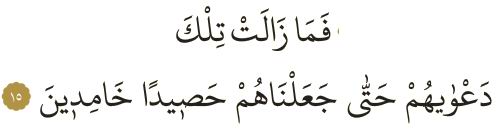 فَمَا زَالَتْ تِلْكَ
دَعْوٰيهُمْ حَتّٰى جَعَلْنَاهُمْ حَص۪يدًا خَامِد۪ينَ ١٥